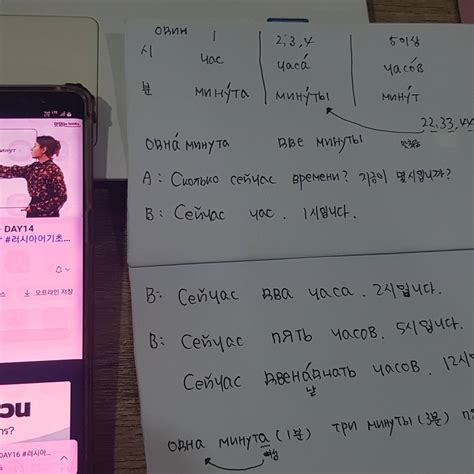 один 1 2,3,4 5이상
시 час часа́ часо́в
분 мину́та мину́ты мину́т
22,33,44
одна́ минута две минуты
A: Сколько сейчас времени? 지금이 몇시입니까?
B: Сейчас час. 1시입니다.
B: Сейчас два часа. 2시입니다.
B: Сейчас пять часов. 5시입니다.
Сейчас двена́дцать часов. 12시
одна минута (1분) три минуты (3분)
여성
DAY14
#러시아어기초...
오프라인 저장
DAY16 #러시아...